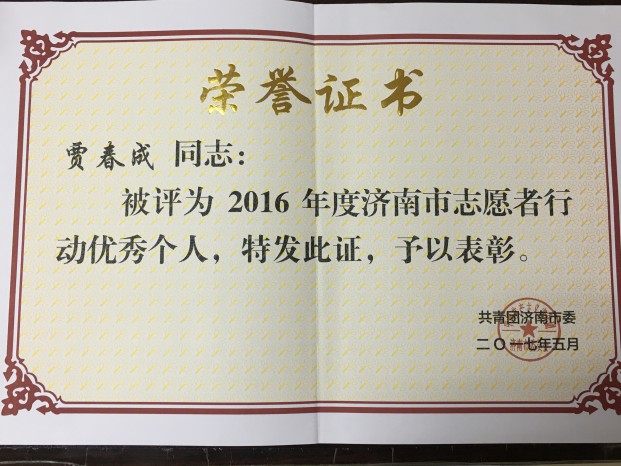 荣誉证书
贾春成 同志：
被评为 2016 年度济南市志愿者行
动优秀个人，特发此证，予以表彰。
共青团济南市委
二〇一七年五月